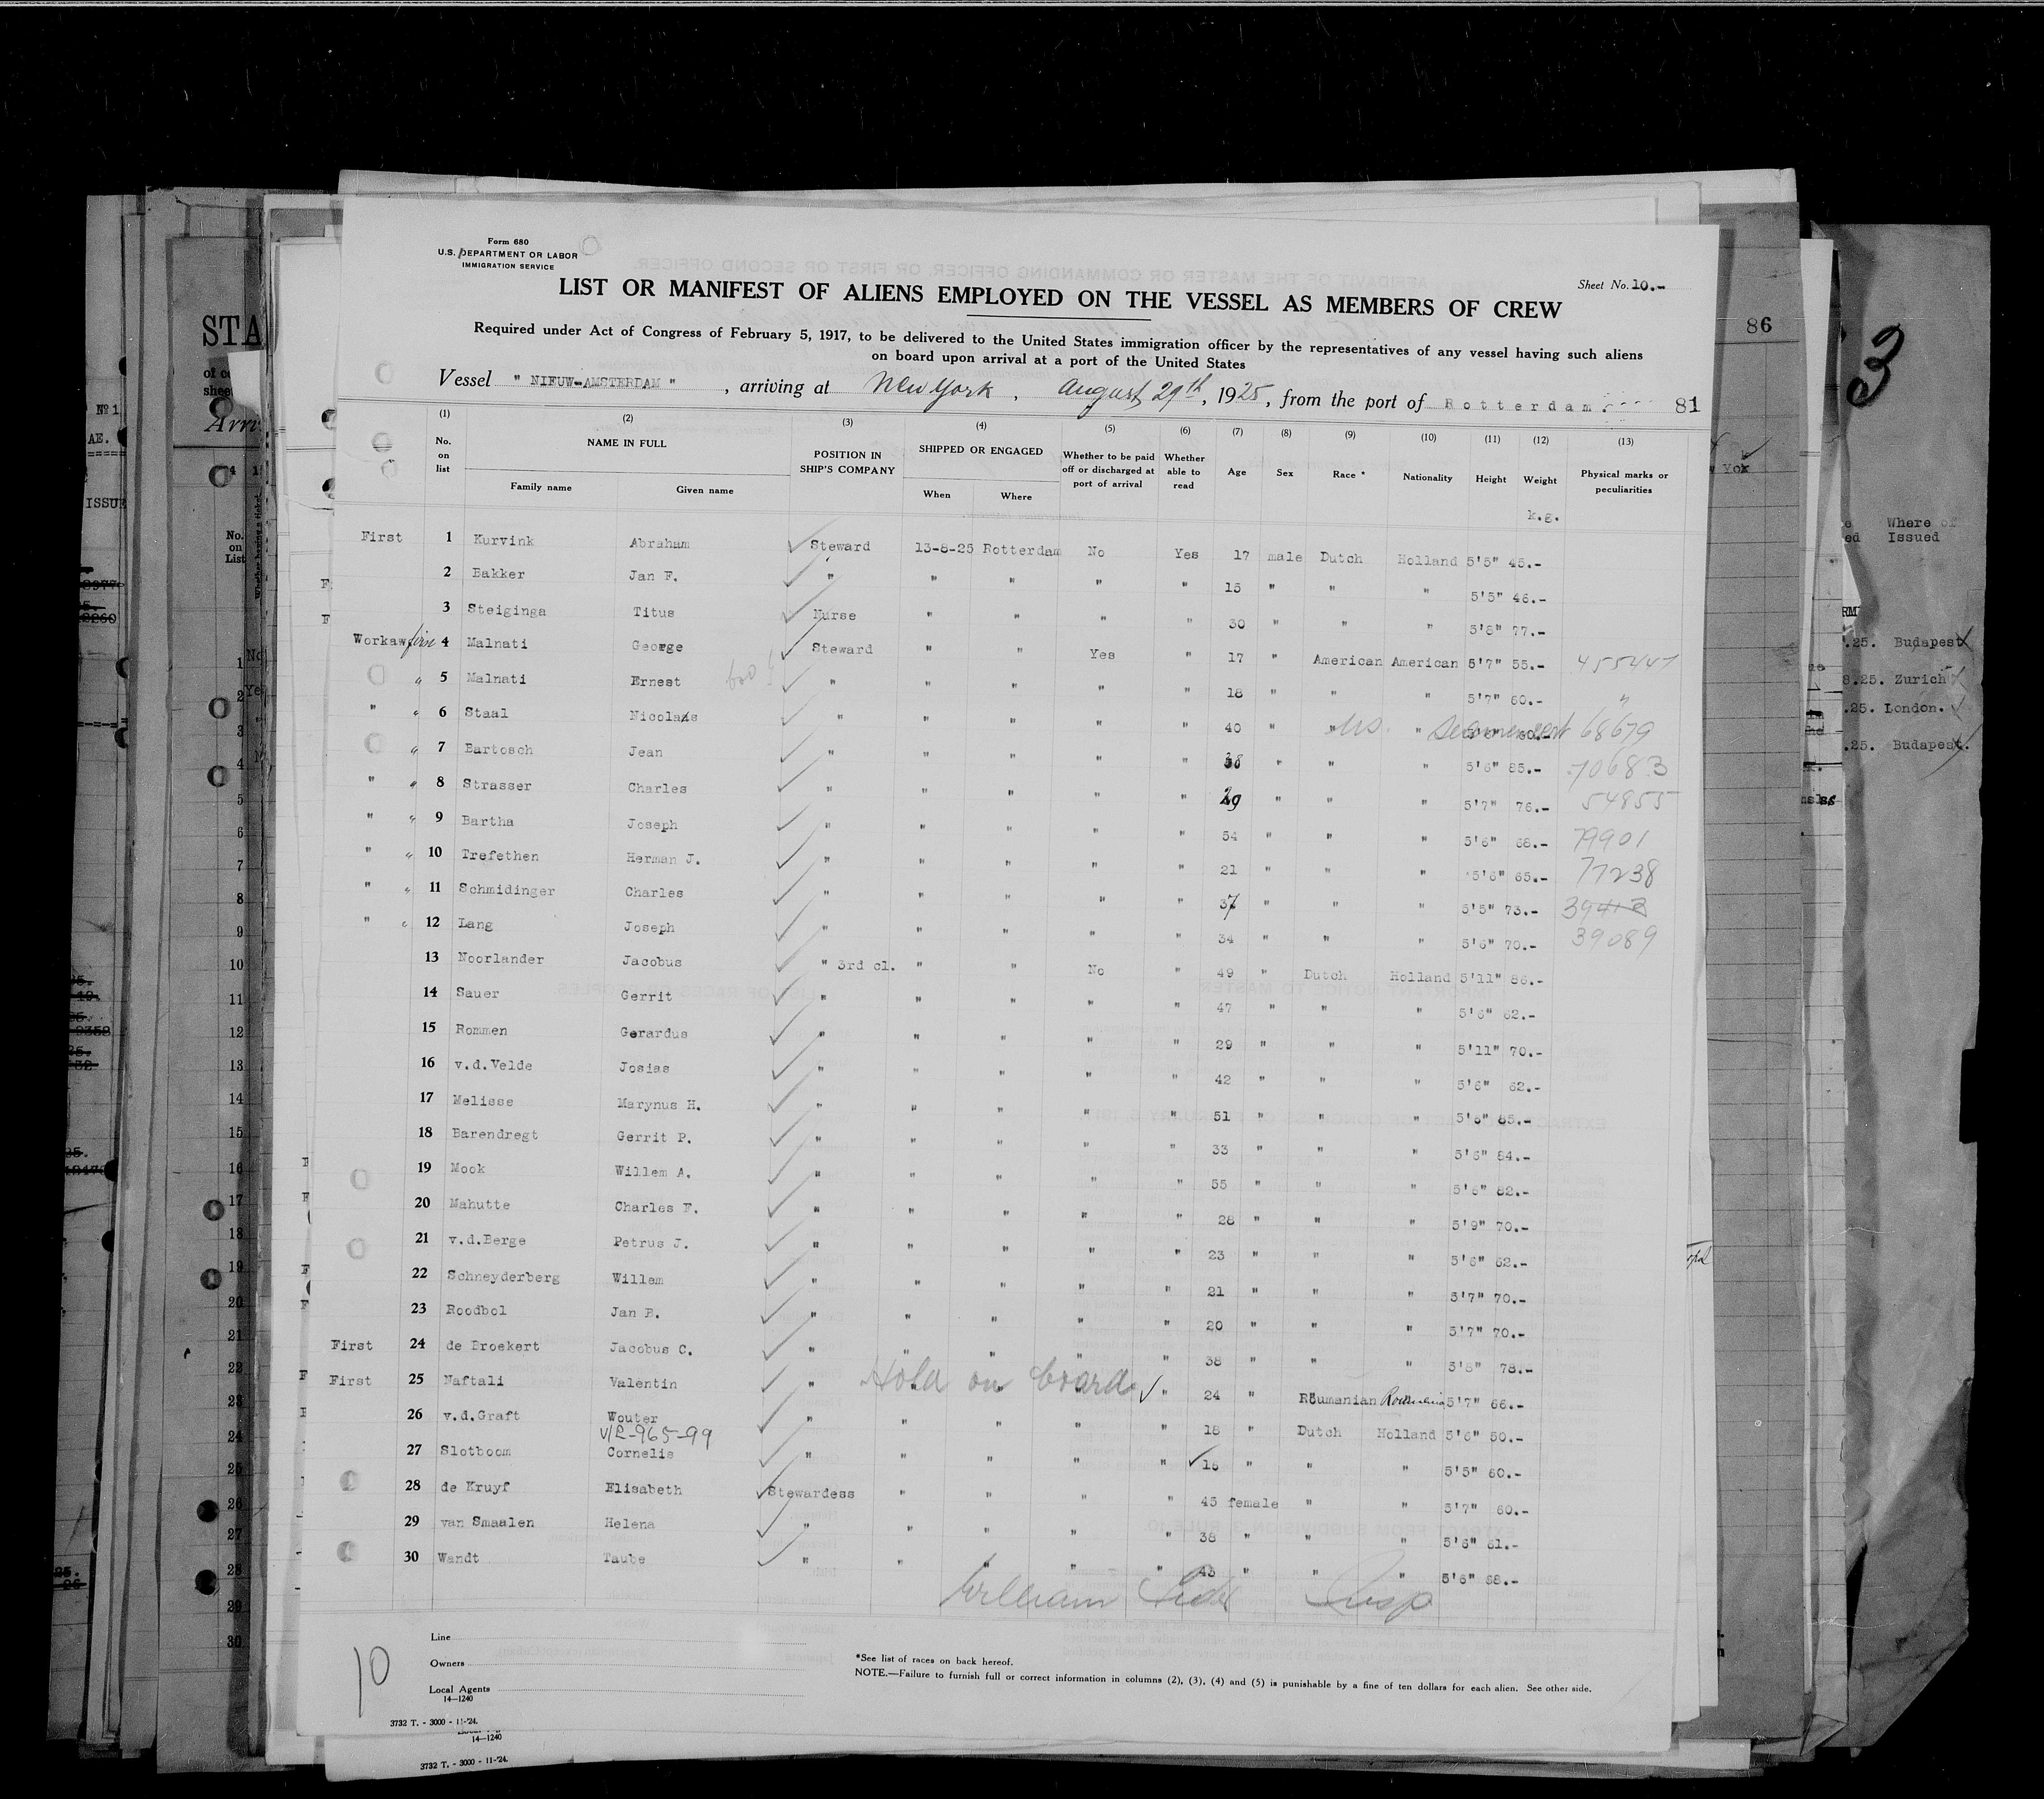 Form 680
U.S. DEPARTMENT OR LABOR
IMMIGRATION SERVICE
Sheet No. 10.-
LIST OR MANIFEST OF ALIENS EMPLOYED ON THE VESSEL AS MEMBERS OF CREW
Required under Act of Congress of February 5, 1917, to be delivered to the United States immigration officer by the representatives of any vessel having such aliens
on board upon arrival at a port of the United States
Vessel " NIEUW-AMSTERDAM " , arriving at New York , August 29th , 1925 , from the port of Rotterdam. 81
(1) (2) (3) (4) (5) (6) (7) (8) (9) (10) (11) (12) (13)
No. on list NAME IN FULL Family name Given name POSITION IN SHIP'S COMPANY SHIPPED OR ENGAGED When Where Whether to be paid off or discharged at port of arrival Whether able to read Age Sex Race * Nationality Height Weight Physical marks or peculiarities
k.g.
First 1 Kurvink Abraham Steward 13-8-25 Rotterdam No Yes 17 male Dutch Holland 5'5" 45.-
2 Bakker Jan F. " " " " " 15 " " " 5'5" 46.-
3 Steiginga Titus Nurse " " " " 30 " " " 5'8" 77.-
Workaw first 4 Malnati George Steward " " Yes " 17 " American American 5'7" 55.- 455447
" 5 Malnati Ernest " " " " " 18 " " " 5'7" 60.- "
" " 6 Staal Nicolaas " " " " " 40 " " US. " 5'6" 60.- 68679
" 7 Bartosch Jean " " " " " 38 " " " 5'6" 85.- 70683
" " 8 Strasser Charles " " " " " 29 " " " 5'7" 76.- 54855
" " 9 Bartha Joseph " " " " " 54 " " " 5'6" 68.- 79901
" " 10 Trefethen Herman J. " " " " " 21 " " " 5'6" 65.- 77238
" " 11 Schmidinger Charles " " " " " 37 " " " 5'5" 73.- 39413
" " 12 Lang Joseph " " " " " 34 " " " 5'6" 70.- 39089
13 Noorlander Jacobus " 3rd cl. " " No " 49 " Dutch Holland 5'11" 86.-
14 Sauer Gerrit " " " " " 47 " " " 5'6" 62.-
15 Rommen Gerardus " " " " " 29 " " " 5'11" 70.-
16 v.d.Velde Josias " " " " " 42 " " " 5'6" 62.-
17 Melisse Marynus H. " " " " " 51 " " " 5'6" 85.-
18 Barendregt Gerrit P. " " " " " 33 " " " 5'6" 84.-
19 Mook Willem A. " " " " " 55 " " " 5'6" 82.-
20 Mahutte Charles F. " " " " " 28 " " " 5'9" 70.-
21 v.d.Berge Petrus J. " " " " " 23 " " " 5'6" 62.-
22 Schneyderberg Willem " " " " " 21 " " " 5'7" 70.-
23 Roodbol Jan B. " " " " " 20 " " " 5'7" 70.-
First 24 de Broekert Jacobus C. " " " " " 38 " " " 5'8" 78.-
First 25 Naftali Valentin " Hold on board " 24 " Roumanian Roumania 5'7" 66.-
26 v.d.Graft Wouter " " " " " 18 " Dutch Holland 5'6" 50.-
VR-965-99
27 Slotboom Cornelis " " " " " 18 " " " 5'5" 60.-
28 de Kruyf Elisabeth Stewardess " " " " 45 female " " 5'7" 60.-
29 van Smaalen Helena " " " " " 38 " " " 5'6" 61.-
30 Wandt Taube " " " " " 43 " " " 5'6" 68.-
William Insp
Line
Owners
Local Agents
14—1240
*See list of races on back hereof.
NOTE.—Failure to furnish full or correct information in columns (2), (3), (4) and (5) is punishable by a fine of ten dollars for each alien. See other side.
10
3732 T. - 3000 - 11-'24.
14—1240
3732 T. - 3000 - 11-'24.
STA
86
3
Where of
Issued
.25. Budapest
8.25. Zurich
.25. London.
.25. Budapest.